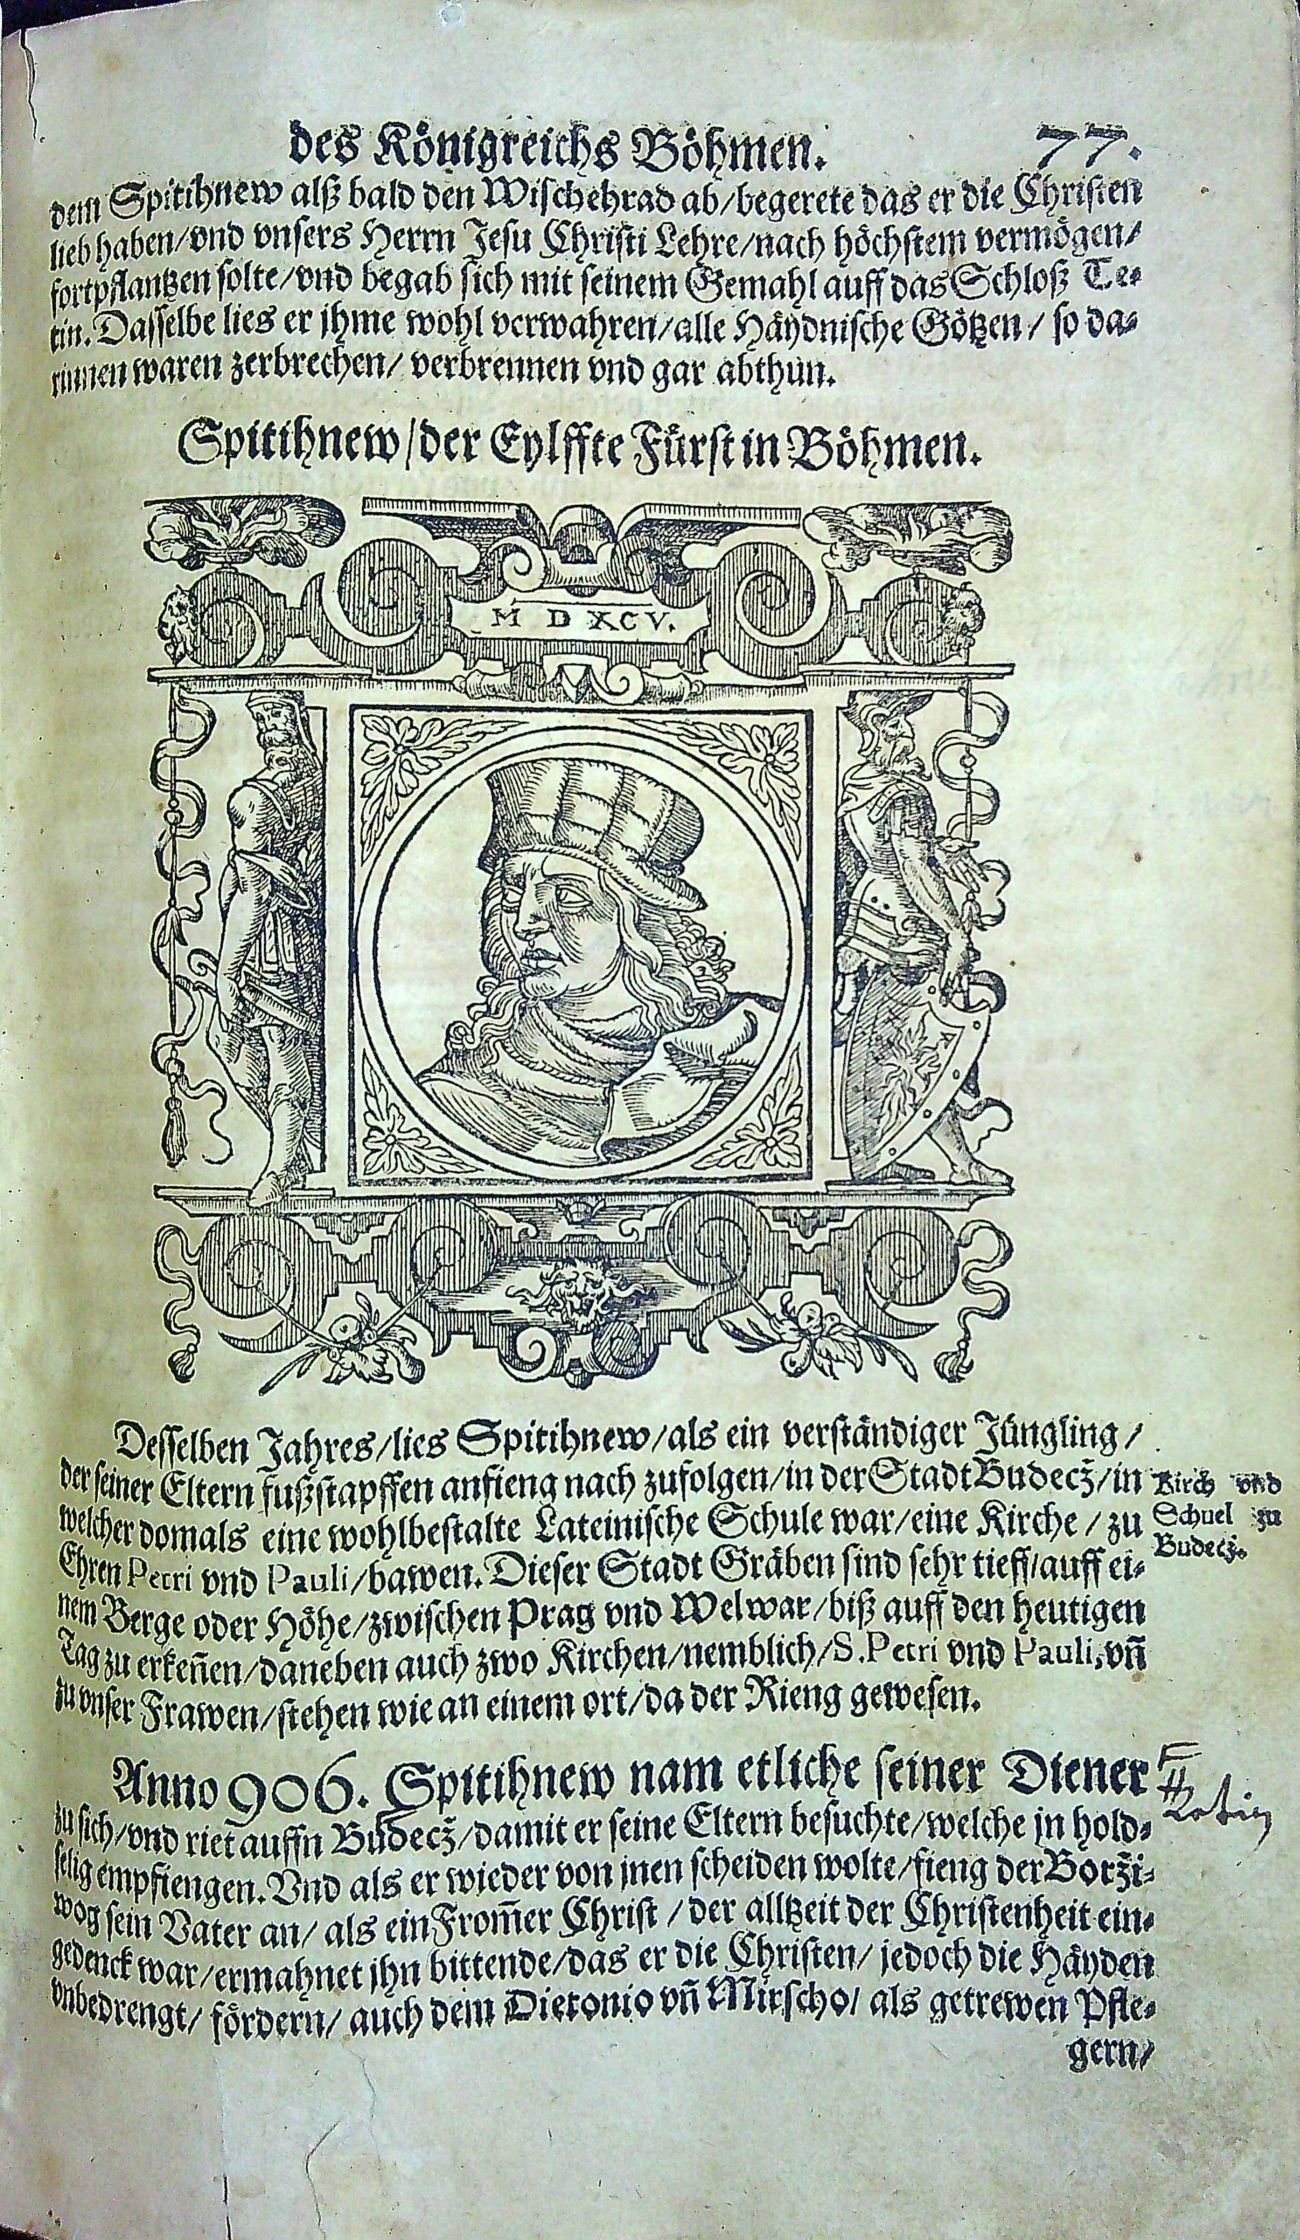 des Königreichs Böhmen. 77.
dem Spitihnew alß bald den Wischehrad ab/begerete das er die Christen
lieb haben/vnd vnsers Herrn Jesu Christi Lehre/nach höchstem vermögen/
fortpflantzen solte/vnd begab sich mit seinem Gemahl auff das Schloß Te-
tin. Dasselbe lies er jhme wohl verwahren/alle Häydnische Götzen/ so da-
rinnen waren zerbrechen/ verbrennen vnd gar abthun.
Spitihnew/der Eylffte Fürst in Böhmen.
M D XCV.
Desselben Jahres/lies Spitihnew/als ein verständiger Jüngling/
der seiner Eltern fußstapffen anfieng nach zufolgen/in der Stadt Budecž/in
welcher domals eine wohlbestalte Lateinische Schule war/eine Kirche/zu
Ehren Petri vnd Pauli/bawen. Dieser Stadt Gräben sind sehr tieff/auff ei-
nem Berge oder Höhe/zwischen Prag vnd Welwar/biß auff den heutigen
Tag zu erkeñen/daneben auch zwo Kirchen/nemblich/S. Petri vnd Pauli, vñ
zu vnser Frawen/stehen wie an einem ort/da der Rieng gewesen.
Kirch vnd
Schuel zu
Budecž.
Anno 906. Spitihnew nam etliche seiner Diener
zu sich/vnd riet auffn Budecž/damit er seine Eltern besuchte/welche jn hold-
selig empfiengen. Vnd als er wieder von jnen scheiden wolte/fieng der Borži-
wog sein Vater an/ als ein From̃er Christ/der alltzeit der Christenheit ein-
gedenck war/ermahnet jhn bittende/das er die Christen/ jedoch die Häyden
vnbedrengt/ fördern/ auch dem Dietonio vñ Mirscho/ als getrewen Pfle-
gern/